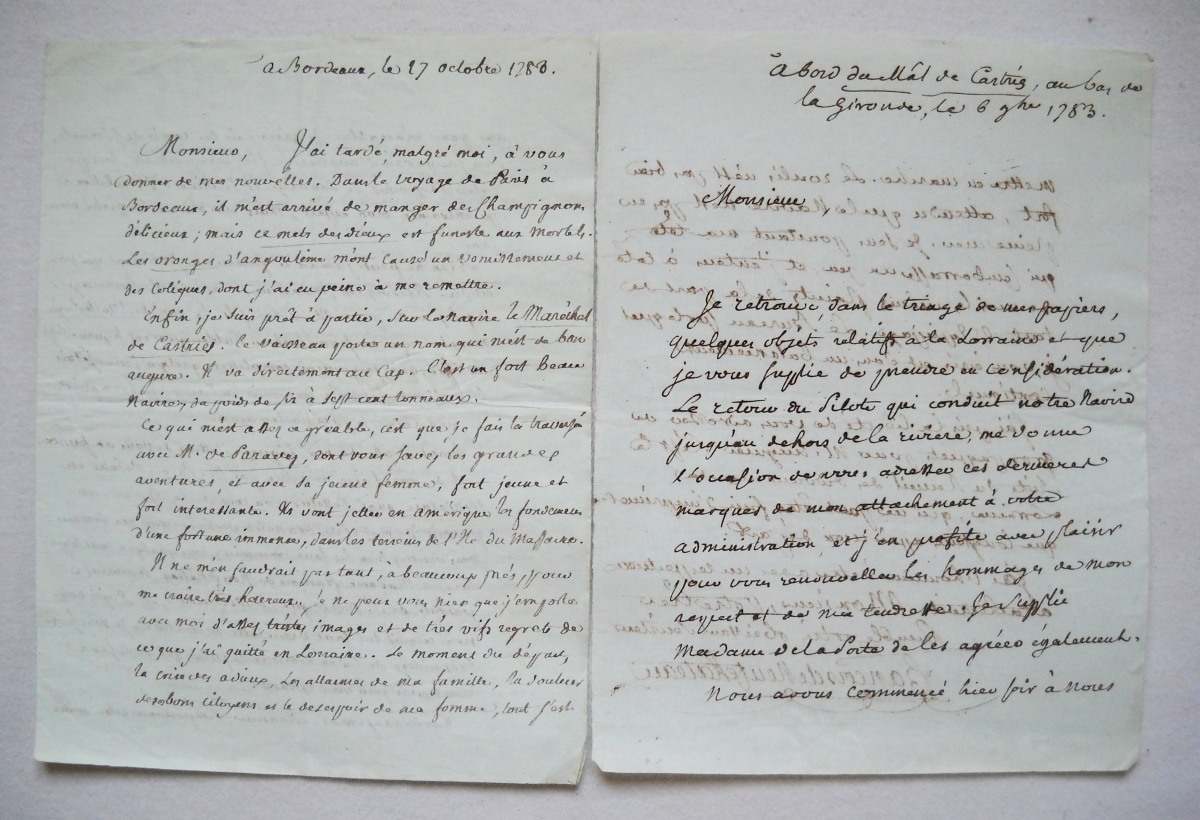 a Bordeaux, le 27 octobre 1783.
Monsieur, J'ai tardé, malgré moi, à vous
donner de mes nouvelles. Dans le voyage de Paris à
Bordeaux, il m'est arrivé de manger des Champignons
délicieux; mais ce mets des Dieux est funeste aux Mortels.
Les oronges d'angoulème m'ont causé un vomissement et
des coliques, dont j'ai eu peine à me remettre.
Enfin, je suis prêt à partir, sur le navire le Maréchal
de Castries. Ce vaisseau porte un nom qui m'est de bon
augure. Il va directement au Cap. C'est un fort beau
Navire, du poids de six à sept cent tonneaux.
Ce qui m'est assez agréable, c'est que je fais la traversée
avec M. de Paradès, dont vous savez les grandes
aventures, et avec sa jeune femme, fort jeune et
fort interessante. Ils vont jetter en amérique les fondemens
d'une fortune immense, dans les terreins de l'Ile du Massacre.
Il ne m'en faudrait pas tant, à beaucoup près, pour
me croire très heureux. Je ne peux vous nier que j'emporte
avec moi d'assez tristes images et de très vifs regrets de
ce que j'ai quitté en Lorraine. Le moment du départ,
la crise des adieux, les allarmes de ma famille, la douleur
de mes bons citoyens et le desespoir de ma femme, tout s'est
à Bord du Mâl de Castries, au bas de
la Gironde, le 6 9bre 1783.
Monsieur,
Je retrouve, dans le triage de mes papiers,
quelques objets relatifs à la Lorraine et que
je vous supplie de prendre en considération.
Le retour du Pilote qui conduit notre Navire
jusqu'au dehors de la rivière, me donne
l'occasion de vous adresser ces dernieres
marques de mon attachement à votre
administration, et j'en profite avec plaisir
pour vous renouveller les hommages de mon
respect et de ma tendresse. Je supplie
Madame de la Porte de les agréer également.
Nous avons commencé hier soir à nous